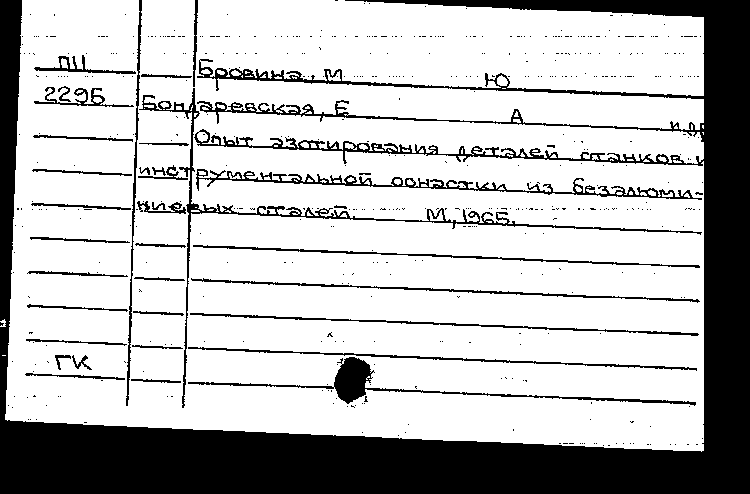 ПII Бровина, М Ю
2295 Бондаревская, Е А и др
Опыт азотирования деталей станков и
инструментальной оснастки из безалюми-
ниевых сталей. М, 1965.
ГК